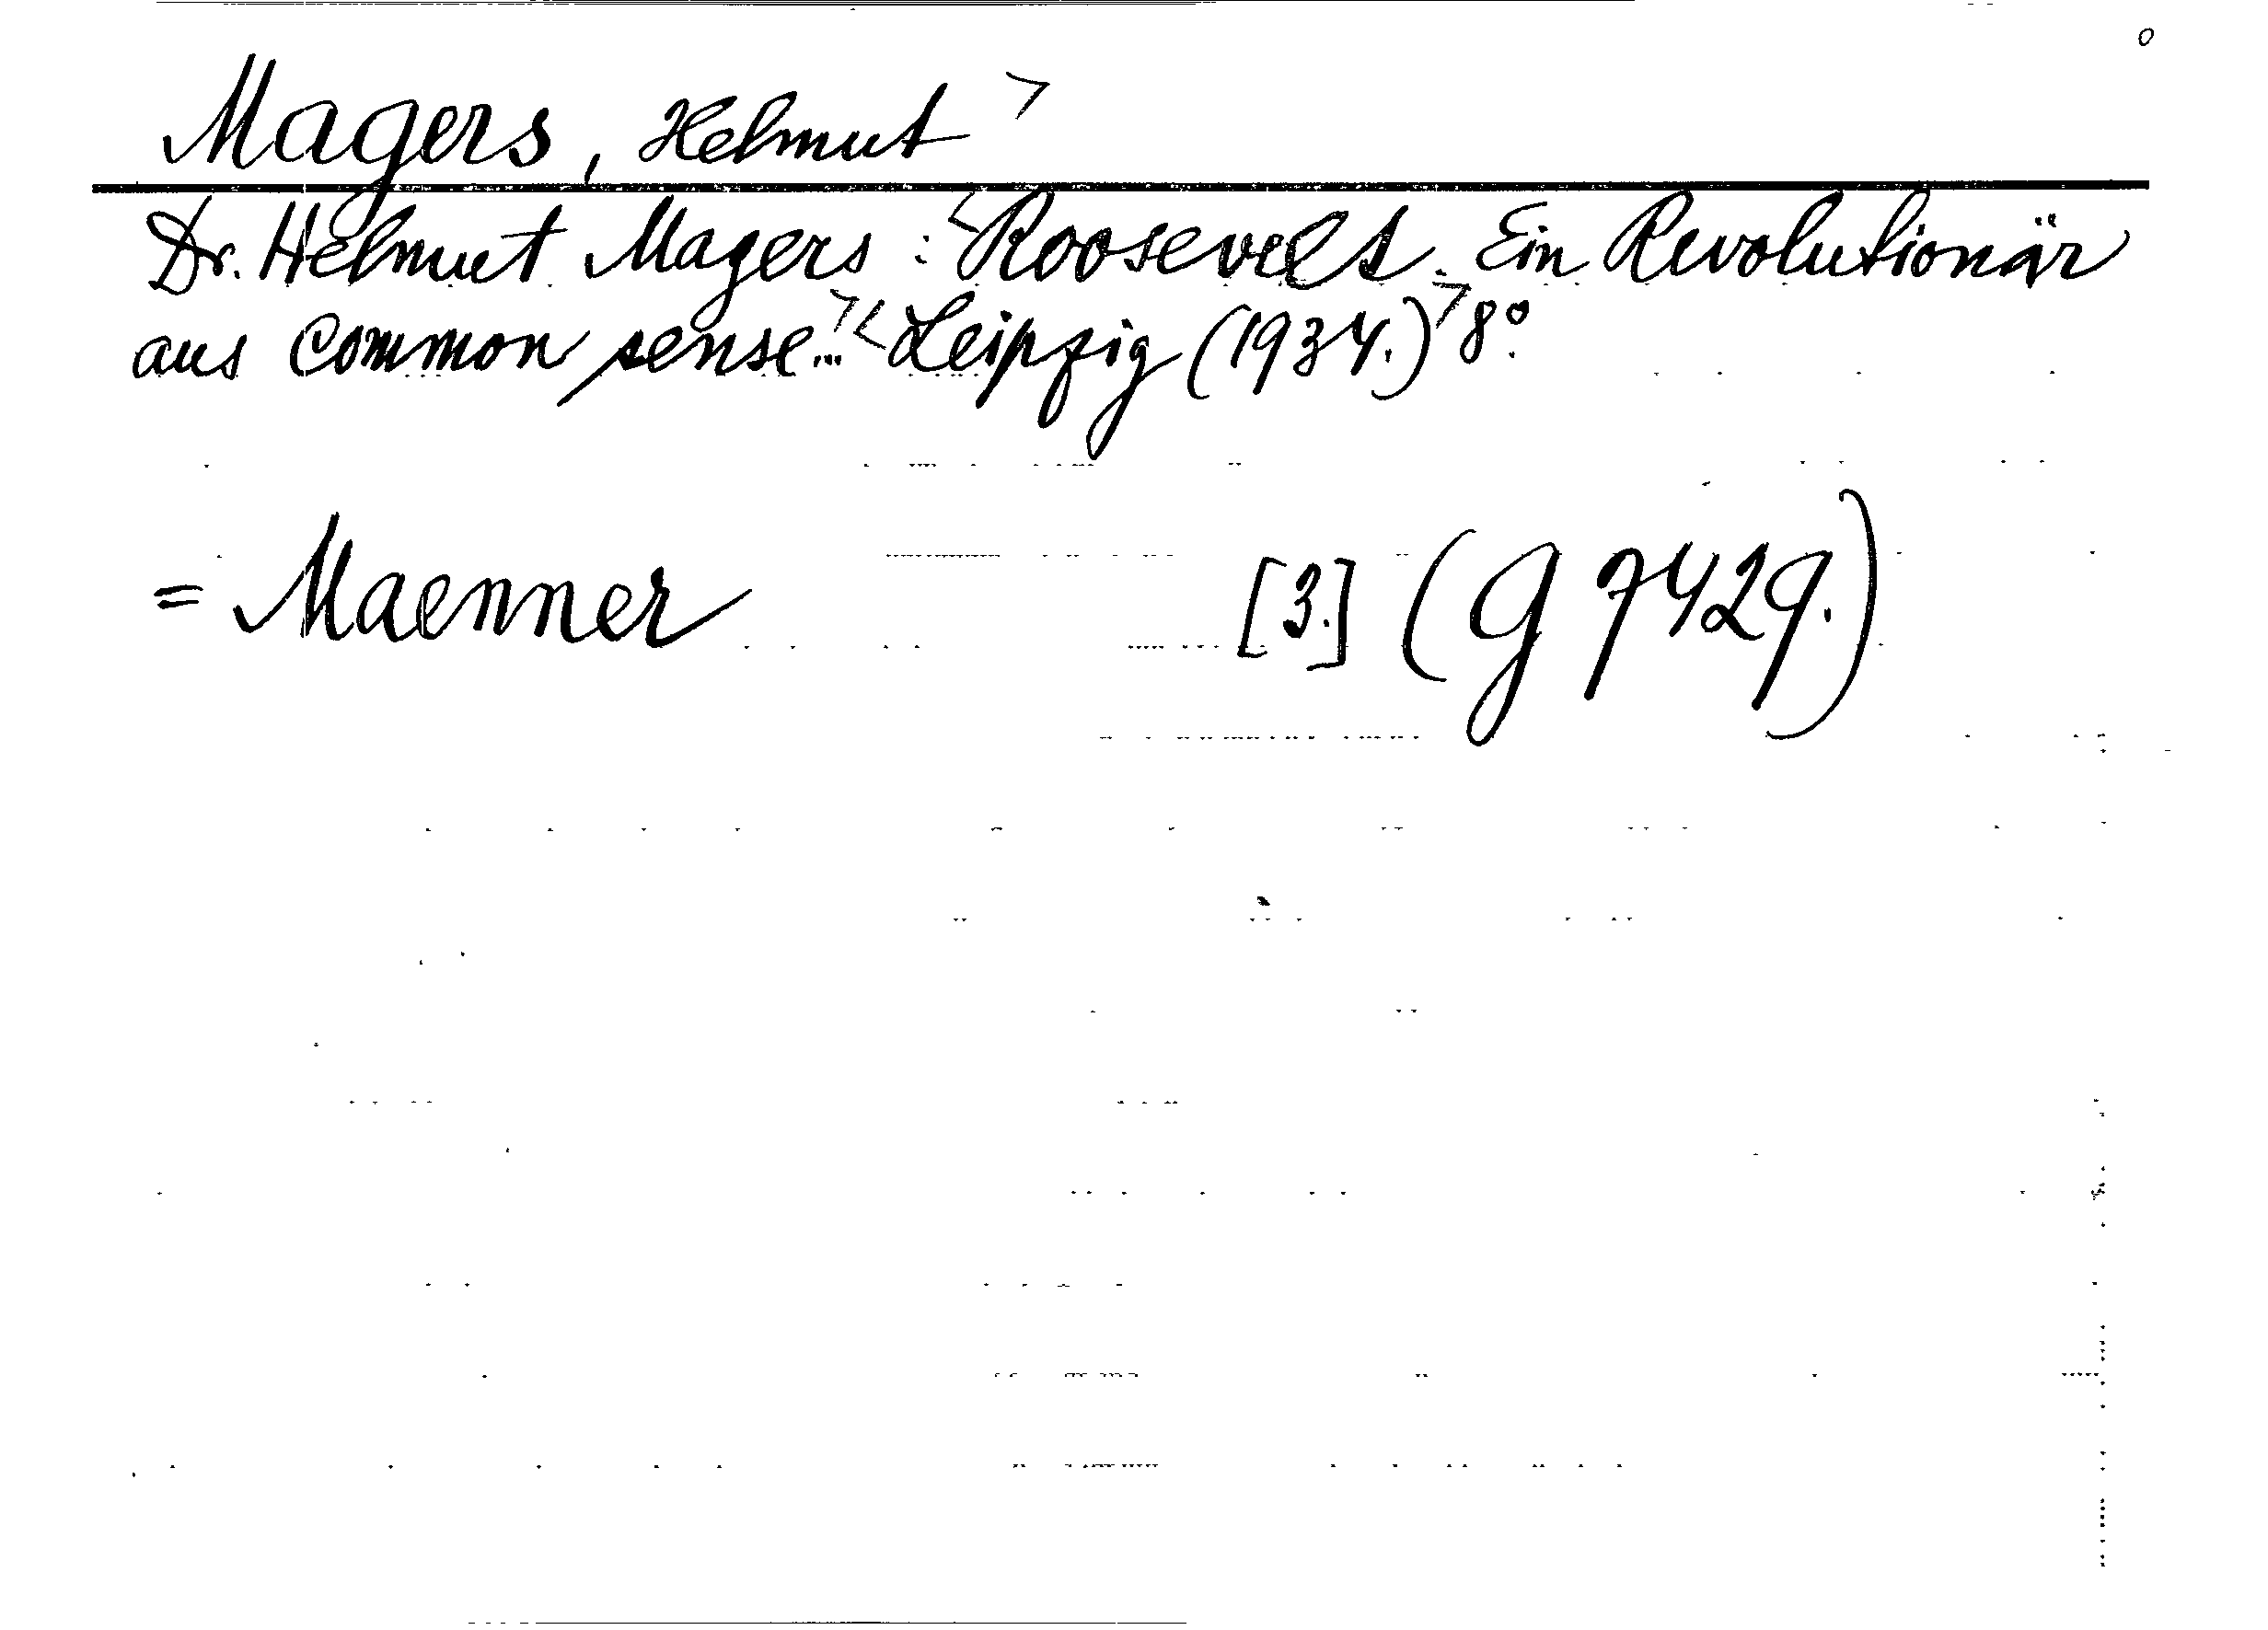 Magers, Helmut >
Dr. Helmut Magers: <Roosevelt. Ein Revolutionär
aus Common sense...> <Leipzig (1934.)> 8°.
= Maenner [3.] (G 7429.)